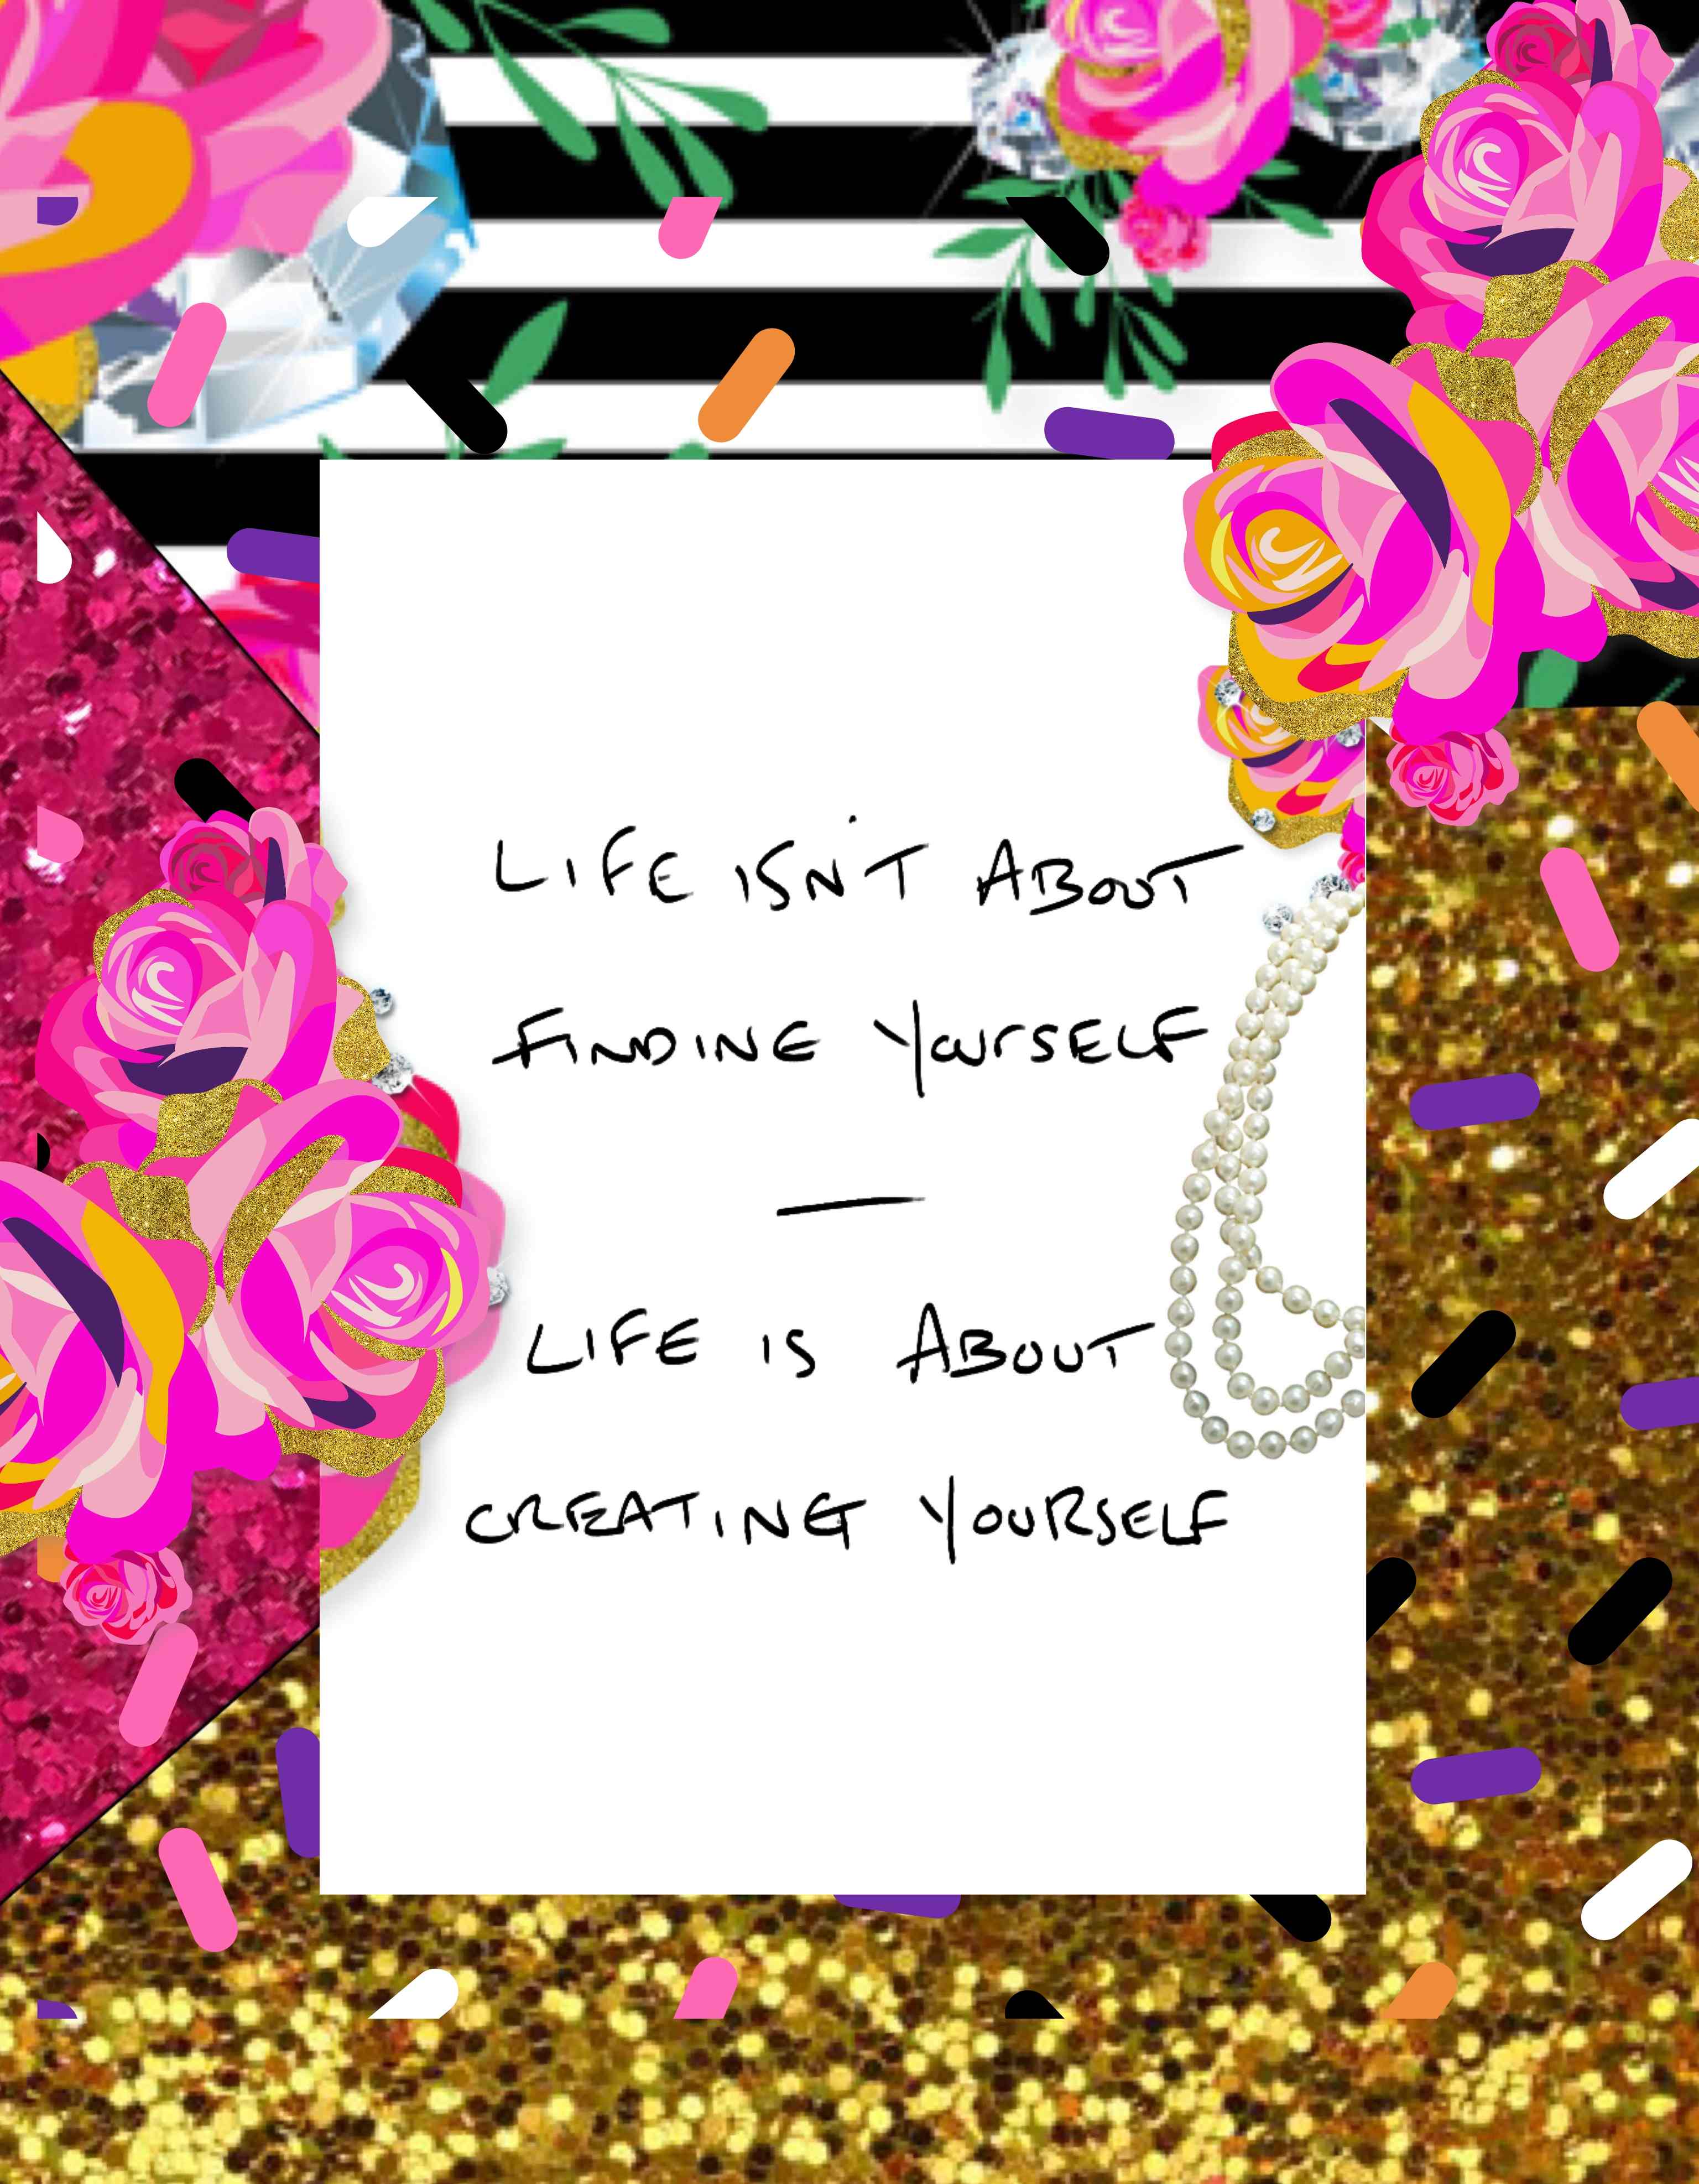 LIFE ISN'T ABOUT
FINDING YOURSELF
—
LIFE IS ABOUT
CREATING YOURSELF